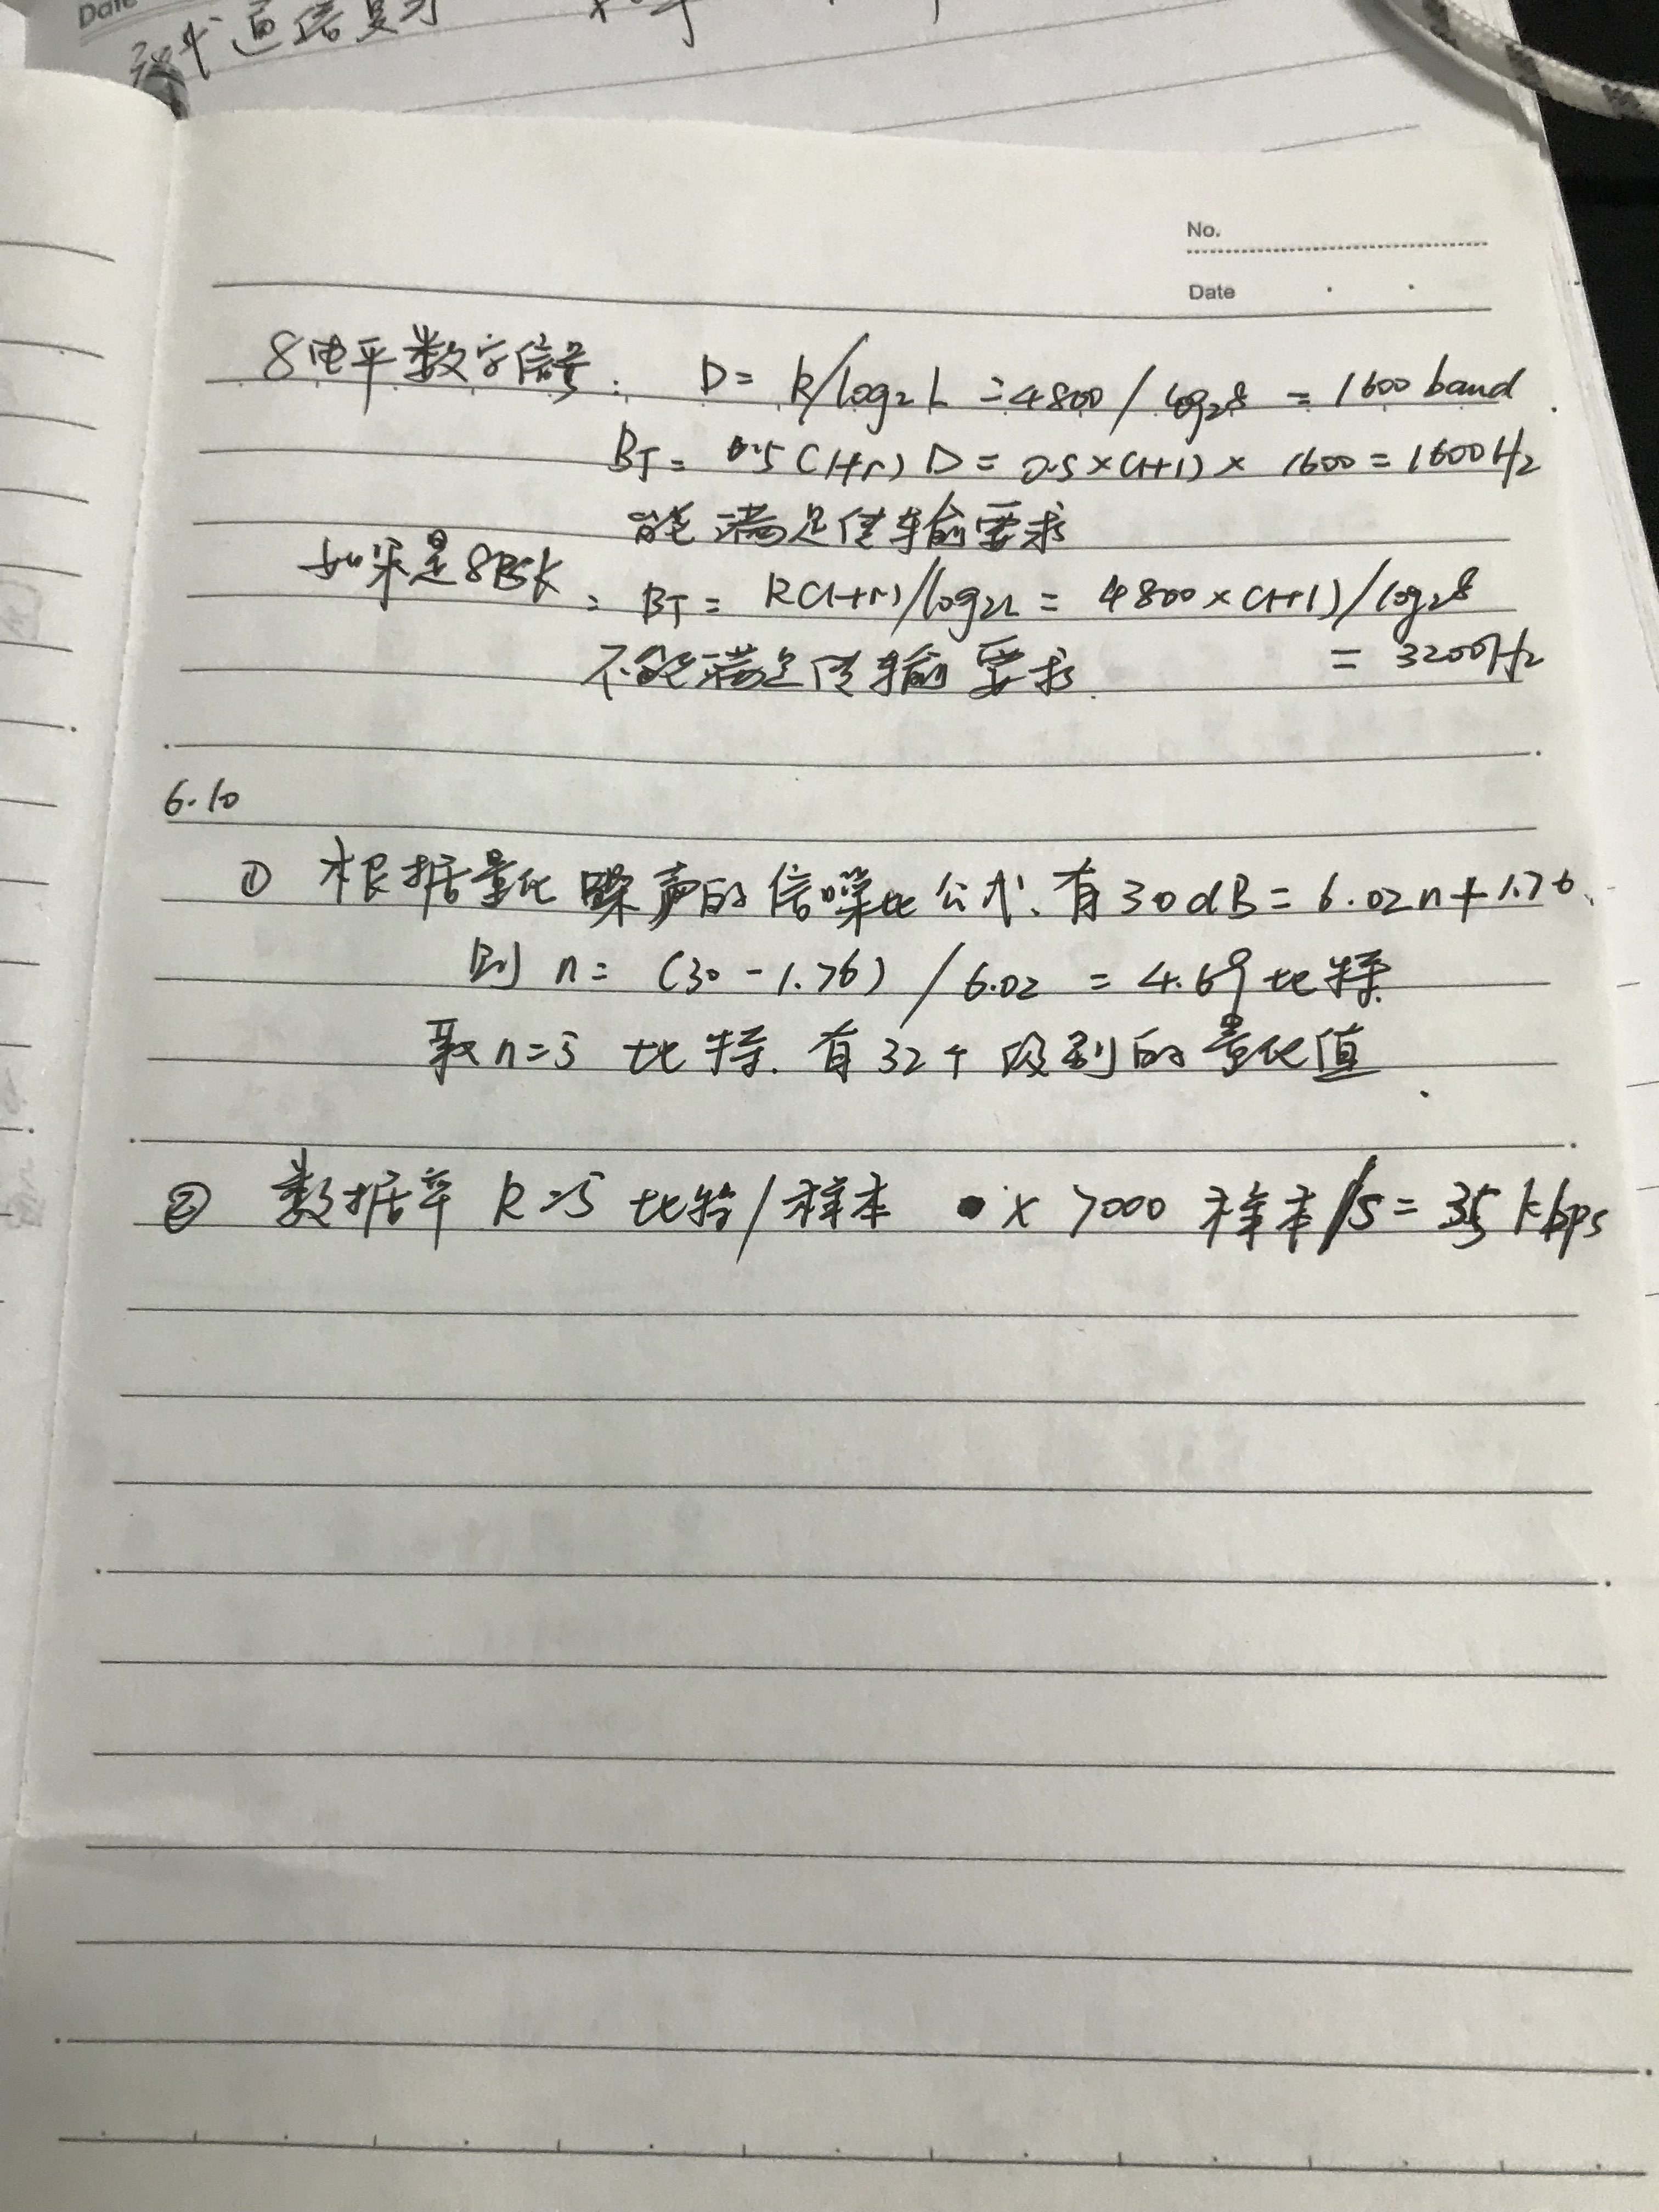 Date
通信复习
No.
Date
8电平数字信号: D= R/log₂L =4800/log₂8 = 1600 band.
B_T = 0.5(1+r)D = 0.5×(1+1)× 1600 = 1600Hz
能满足传输要求
如果是8PSK: B_T = R(1+r)/log₂L = 4800×(1+1)/log₂8
不能满足传输要求. = 3200Hz
6.10
① 根据量化噪声的信噪比公式、有30dB = 6.02n+1.76、
则 n= (30-1.76)/6.02 = 4.69比特.
取n=5 比特. 有32个级别的量化值.
② 数据率 R=5 比特/样本 × 7000 样本/s = 35 kbps